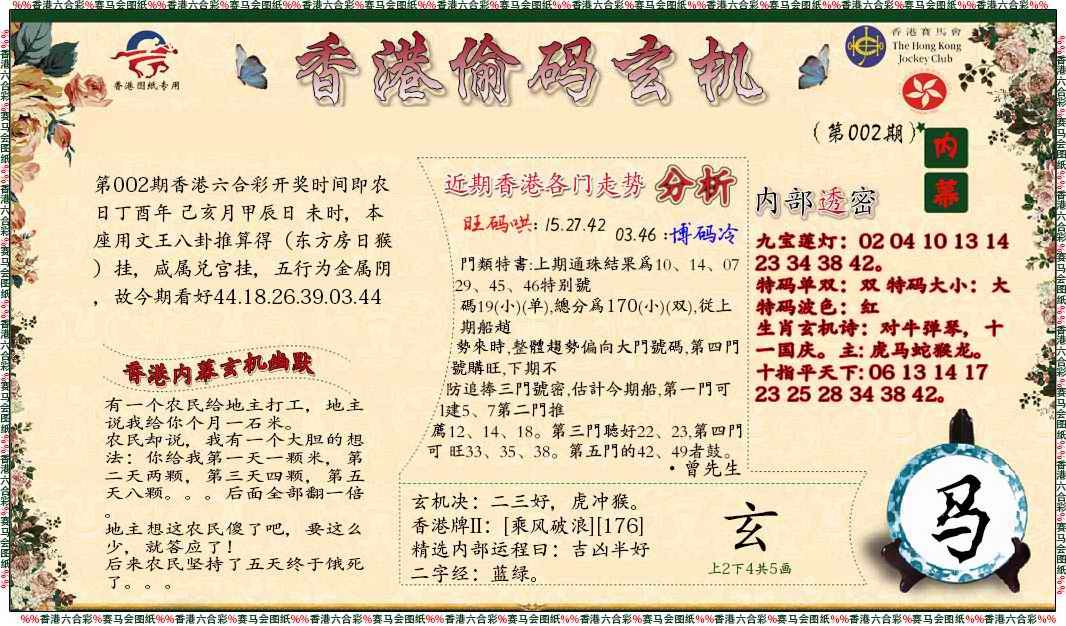 %%香港六合彩%赛马会图纸%%香港六合彩%赛马会图纸%%香港六合彩%赛马会图纸%%香港六合彩%赛马会图纸%%香港六合彩%赛马会图纸%%香港六合彩%赛马会图纸%%香港六合彩%赛马会图纸%%香港六合彩%%
香港图纸专用
香港偷码玄机
香港賽馬會
The Hong Kong
Jockey Club
(第002期)
内
幕
第002期香港六合彩开奖时间即农
日丁酉年 己亥月甲辰日 未时，本
座用文王八卦推算得（东方房日猴
）挂，咸属兑宫挂，五行为金属阴
，故今期看好44.18.26.39.03.44
香港内幕玄机幽默
有一个农民给地主打工，地主
说我给你个月一石米。
农民却说，我有一个大胆的想
法：你给我第一天一颗米，第
二天两颗，第三天四颗，第五
天八颗。。。后面全部翻一倍
。
地主想这农民傻了吧，要这么
少，就答应了！
后来农民坚持了五天终于饿死
了。。。
近期香港各门走势 分析
旺码哄: 15.27.42
03.46 :博码冷
門類特書:上期通珠結果爲10、14、07
29、45、46特别號
碼19(小)(单),總分爲170(小)(双),從上
期船趟
勢來時,整體趨勢偏向大門號碼,第四門
號購旺,下期不
防追捧三門號密,估計今期船,第一門可
1建5、7第二門推
薦12、14、18。第三門聽好22、23,第四門
可 旺33、35、38。第五門的42、49者鼓。
·曾先生
内部透密
九宝莲灯：02 04 10 13 14
23 34 38 42。
特码单双：双 特码大小：大
特码波色：红
生肖玄机诗：对牛弹琴，十
一国庆。主: 虎马蛇猴龙。
十指平天下: 06 13 14 17
23 25 28 34 38 42。
玄机决：二三好，虎冲猴。
香港牌II：[乘风破浪][176]
精选内部运程曰：吉凶半好
二字经：蓝绿。
玄
上2下4共5画
马
%%香港六合彩%赛马会图纸%%香港六合彩%赛马会图纸%%香港六合彩%赛马会图纸%%香港六合彩%赛马会图纸%%香港六合彩%赛马会图纸%%香港六合彩%赛马会图纸%%香港六合彩%赛马会图纸%%香港六合彩%%